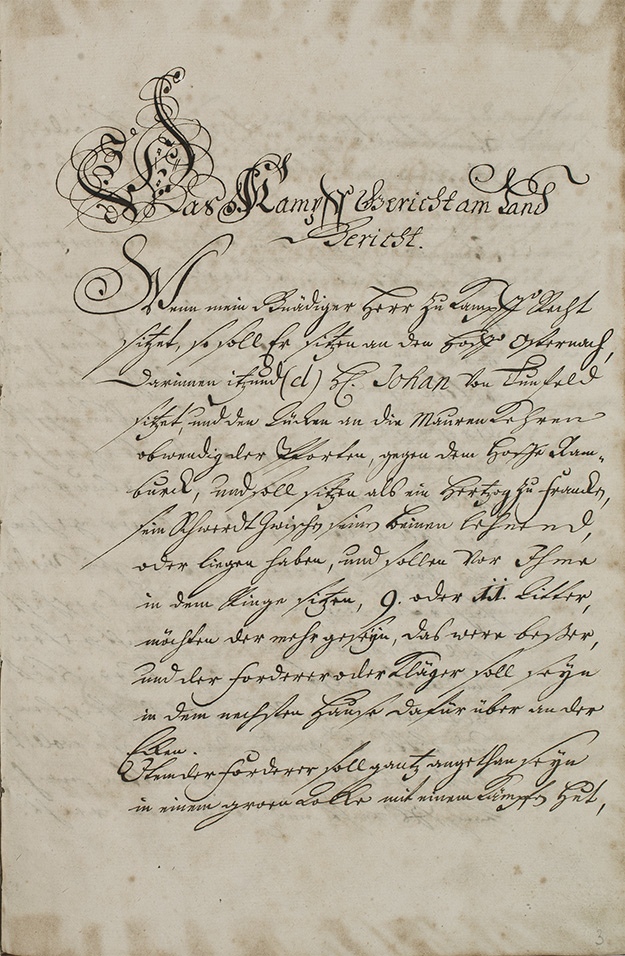 Das Kampff Gericht am Land
Gericht.
Wenn mein Gnädiger Herr zu Kampff Recht
sitzet, so soll Er sitzen an den Hoff Osternach,
darinnen itzund (d) H. Johan von
sitzet, und den Rücken an die Mauren Kehren
obwendig der Pforten, gegen dem Hoffe Ram-
burck, und soll sitzen als ein Hertzog zu Francken,
sein Schwerdt zwischen seinen beinen lehnend,
oder liegen haben, und sollen vor Ihme
in dem Ringe sitzen, 9. oder 11. Ritter,
möchten der mehr geseyn, das were beßer,
und der forderer oder Kläger soll seyn
in dem nechsten Hause dafür über an der
Ecken.
Item der forderer soll gantz angethan seyn
in einem groen Rocke mit einem Kämpffen Hut,
3